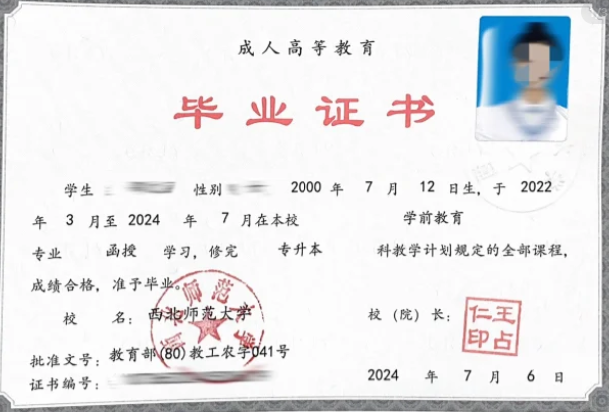 成人高等教育
毕业证书
学生 性别 2000 年 7 月 12 日生，于 2022
年 3 月至 2024 年 7 月在本校 学前教育
专业 函授 学习，修完 专升本 科教学计划规定的全部课程，
成绩合格，准予毕业。
校 名：西北师范大学 校（院）长：
王占仁印
批准文号：教育部(80)教工农字041号
证书编号： 2024 年 7 月 6 日